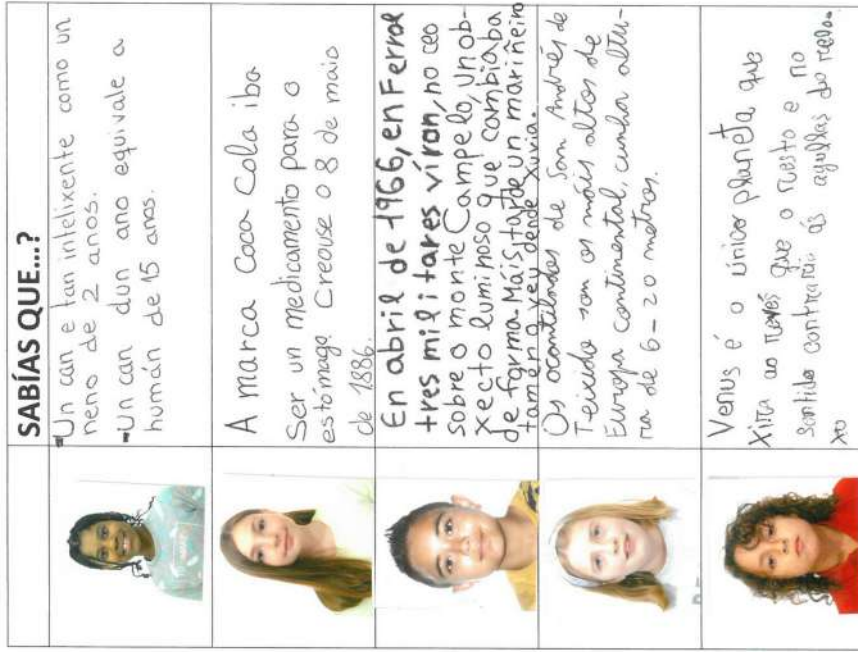 SABÍAS QUE...?
-Un can e tan intelixente como un
neno de 2 anos.
-Un can dun ano equivale a
humán de 15 anos.
A marca Coca Cola iba
Ser un medicamento para o
estómago. Creouse o 8 de maio
de 1886.
En abril de 1966, en Ferrol
tres militares víron, no ceo
sobre o monte Campelo, un ob-
xecto luminoso que cambiaba
de forma. Máis tarde un mariñeiro
tamén o veu dende Xuvia.
Os acontilados de San Andrés de
Teixido son os máis altos de
Europa continental, cunha altu-
ra de 6-20 metros.
Venus é o único planeta que
xira ao revés que o resto e no
sentido contrario ás agullas do relo-
xo